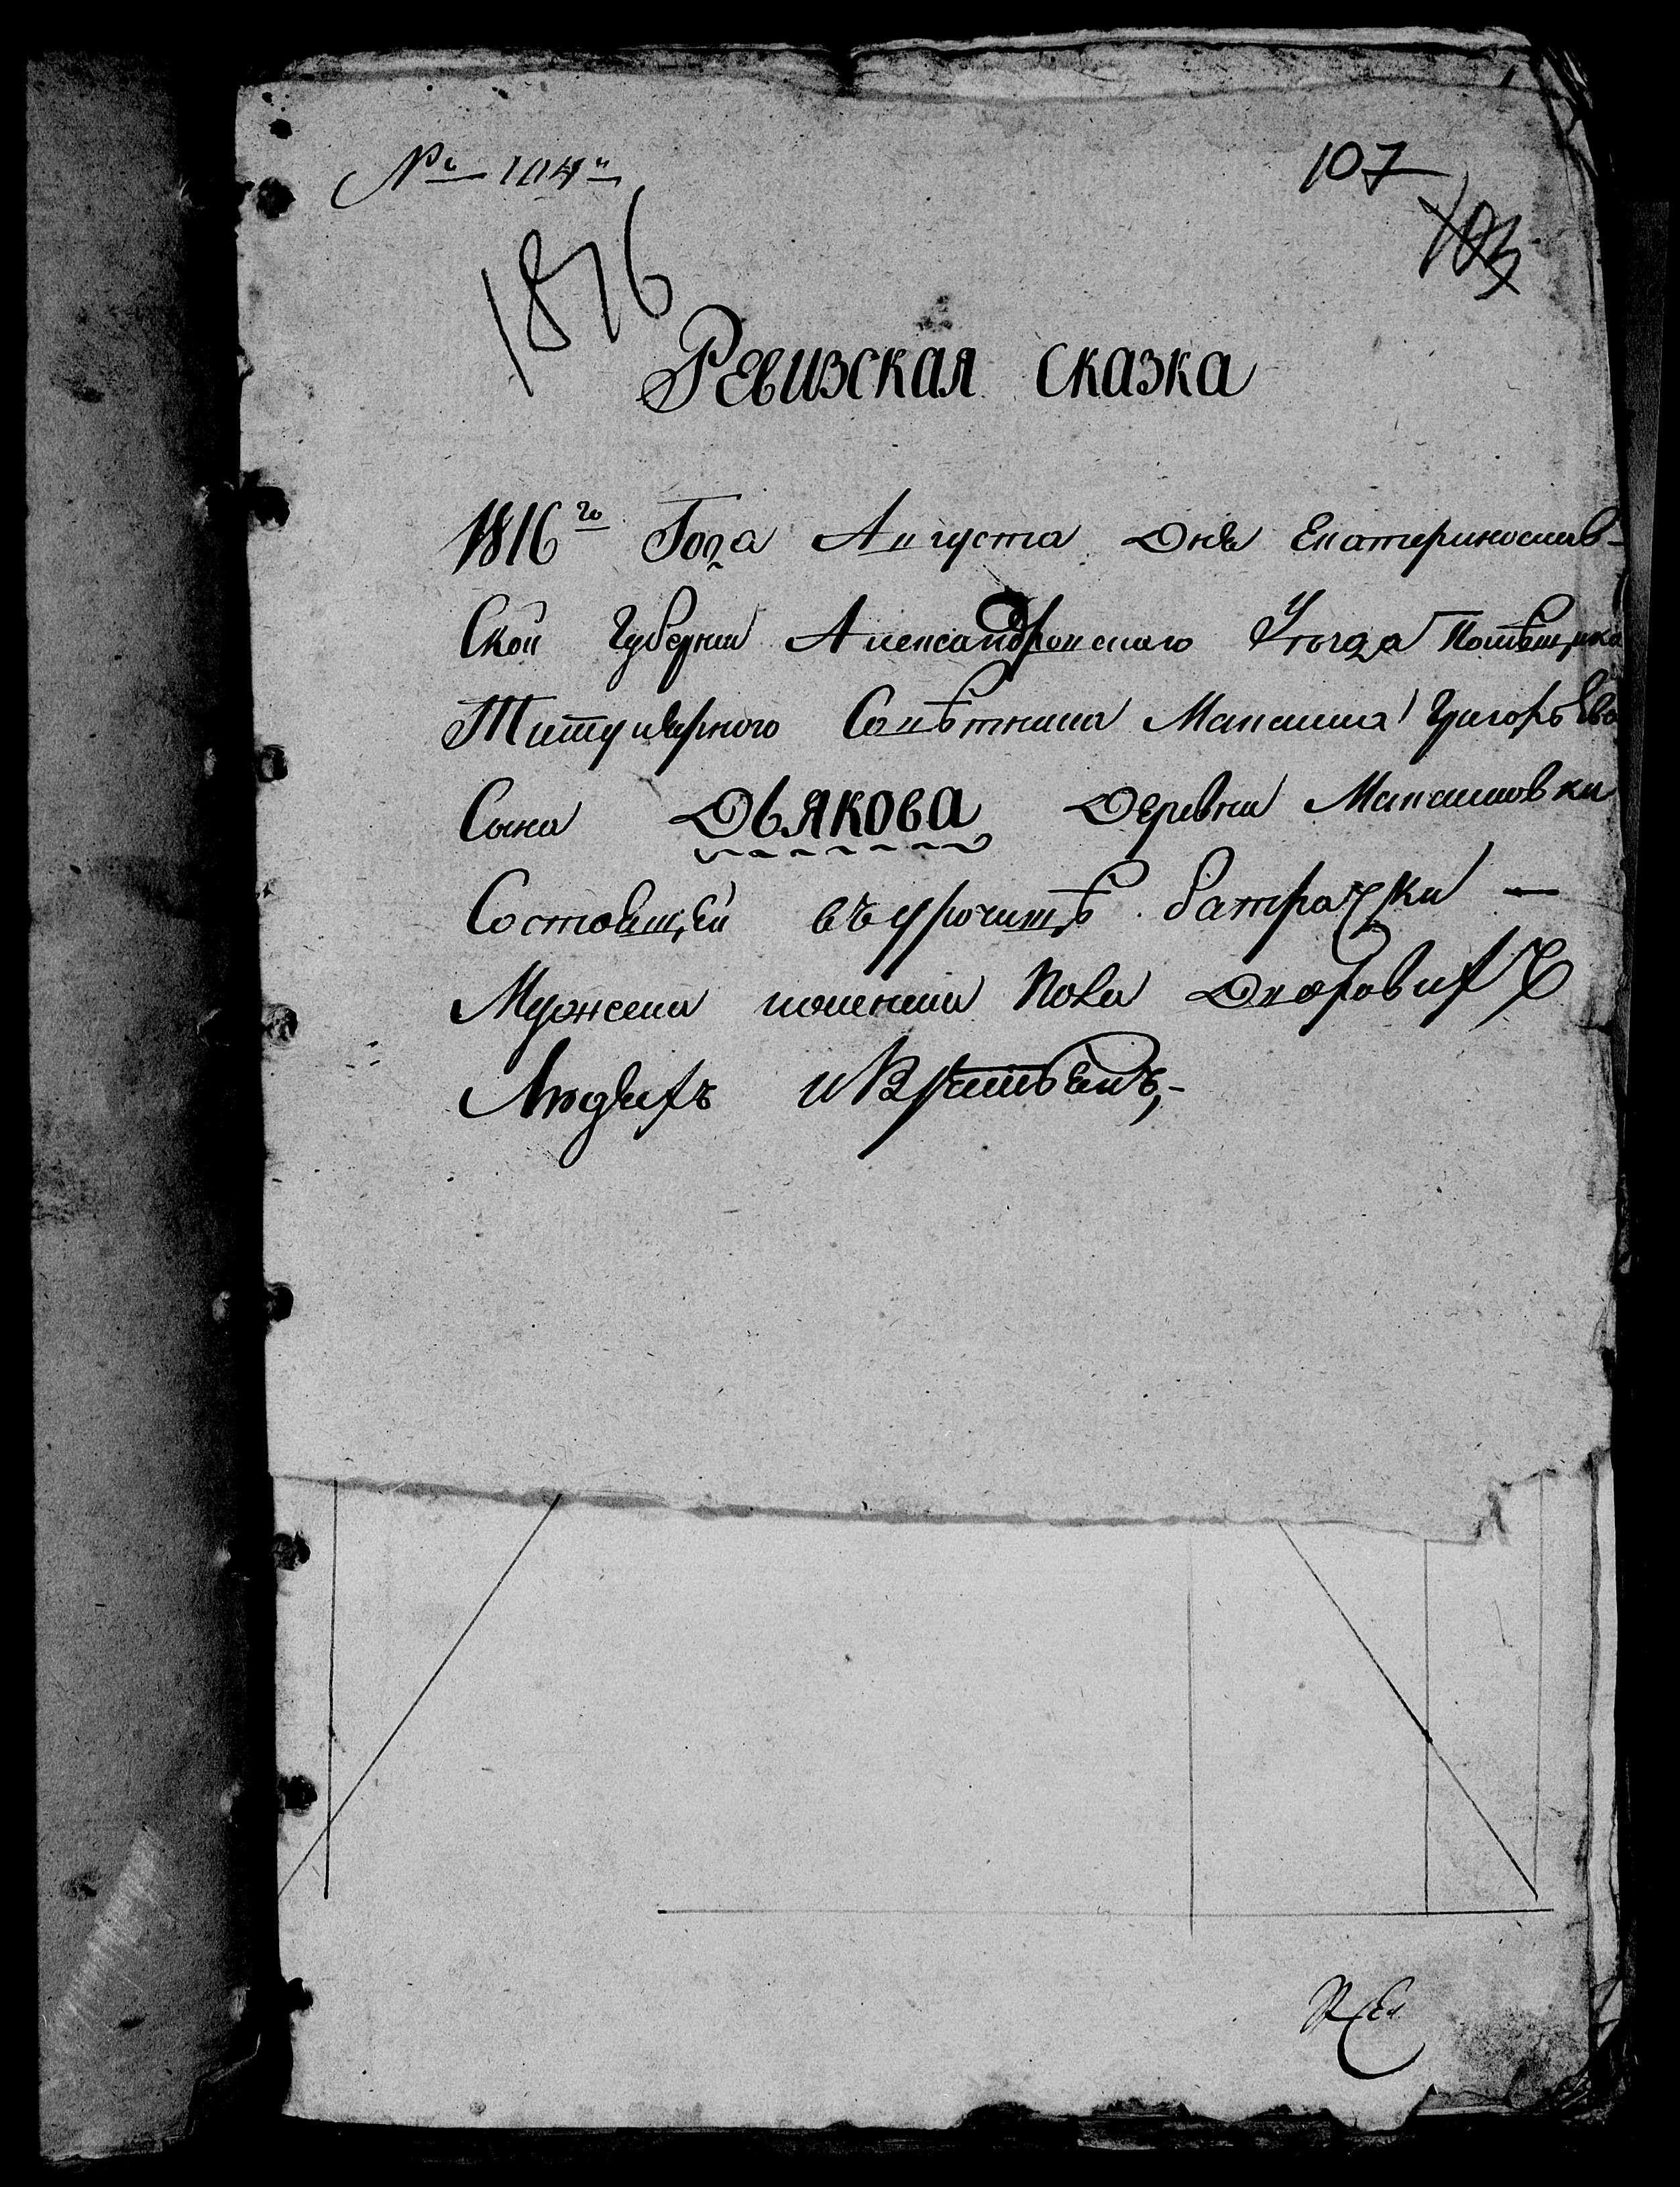 № 104й
107
103
1816
Ревизская сказка
1816го Года Августа дня Екатеринослав-
Ской Губернии Александровскаго Уезда Помѣщика
Титулярного Совѣтника Максима Григорьева
Сына Дьякова Деревни Максимовки
Состоящей въ урочищѣ батрачки —
Мужеска иженска Пола Дворовихъ
Людехъ икрестьянъ,-